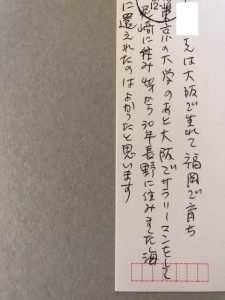 さんは大阪で生れて福岡で育ち
東京の大学のあと大阪でサラリーマンをして
尼崎に住み 44から30年長野に住みました 海
に還えれたのはよかったと思います